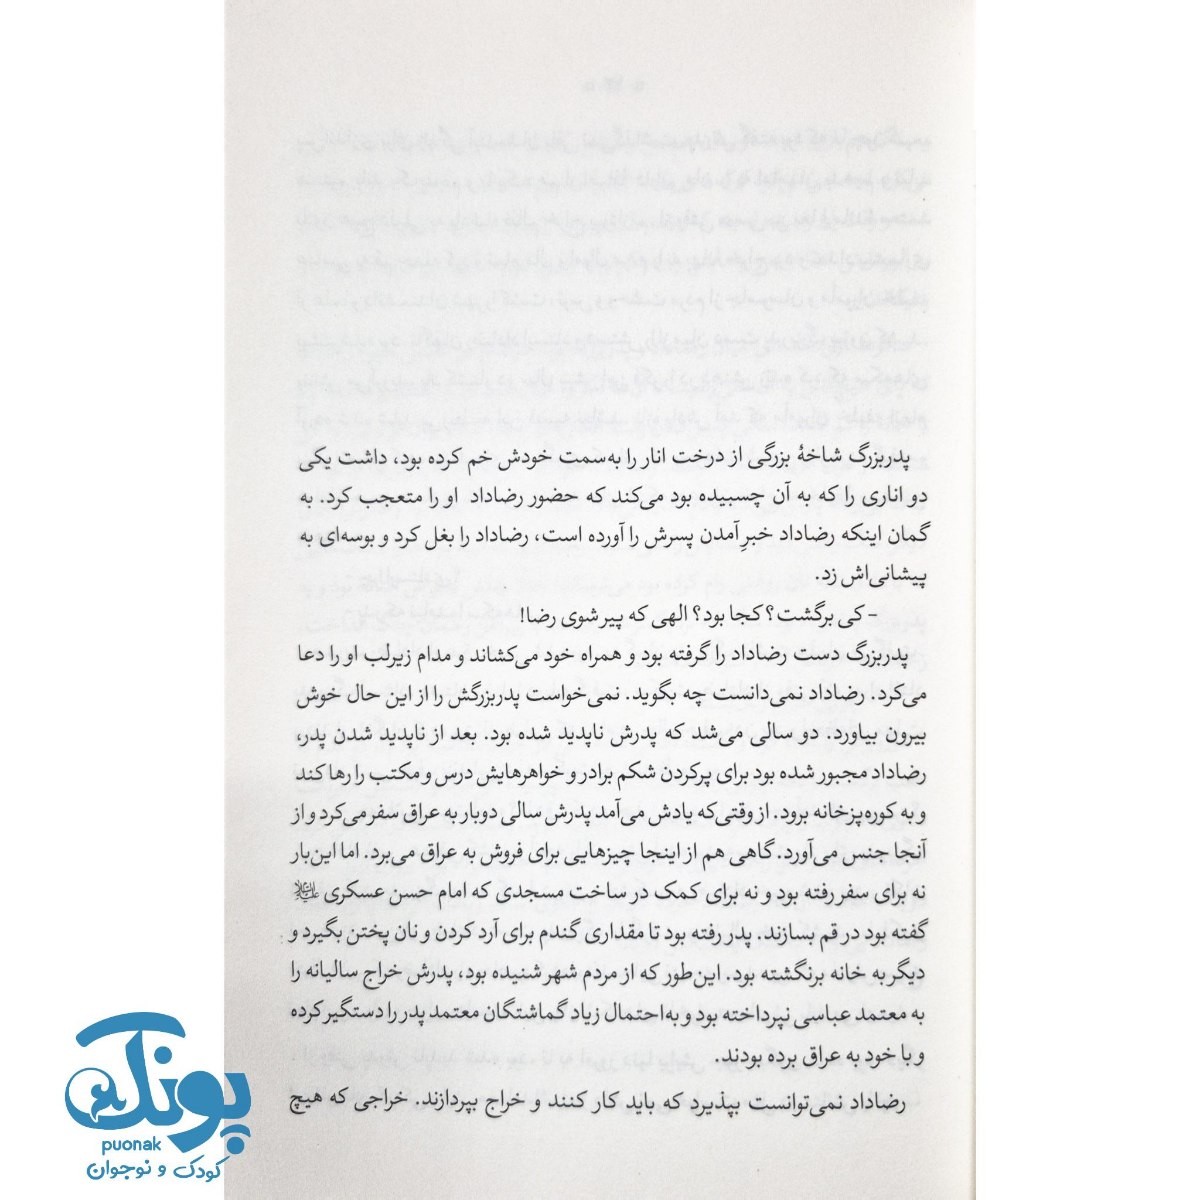 پدربزرگ شاخهٔ بزرگی از درخت انار را به‌سمت خودش خم کرده بود، داشت یکی
دو اناری را که به آن چسبیده بود می‌کند که حضور رضاداد او را متعجب کرد. به
گمان اینکه رضاداد خبرِ آمدن پسرش را آورده است، رضاداد را بغل کرد و بوسه‌ای به
پیشانی‌اش زد.
- کی برگشت؟ کجا بود؟ الهی که پیر شوی رضا!
پدربزرگ دست رضاداد را گرفته بود و همراه خود می‌کشاند و مدام زیرلب او را دعا
می‌کرد. رضاداد نمی‌دانست چه بگوید. نمی‌خواست پدربزرگش را از این حال خوش
بیرون بیاورد. دو سالی می‌شد که پدرش ناپدید شده بود. بعد از ناپدید شدن پدر،
رضاداد مجبور شده بود برای پرکردن شکم برادر و خواهرهایش درس و مکتب را رها کند
و به کوره‌پزخانه برود. از وقتی‌که یادش می‌آمد پدرش سالی دوبار به عراق سفر می‌کرد و از
آنجا جنس می‌آورد. گاهی هم از اینجا چیزهایی برای فروش به عراق می‌برد. اما این‌بار
نه برای سفر رفته بود و نه برای کمک در ساخت مسجدی که امام حسن عسکری علیه‌السلام
گفته بود در قم بسازند. پدر رفته بود تا مقداری گندم برای آرد کردن و نان پختن بگیرد و
دیگر به خانه برنگشته بود. این‌طور که از مردم شهر شنیده بود، پدرش خراج سالیانه را
به معتمد عباسی نپرداخته بود و به‌احتمال زیاد گماشتگان معتمد پدر را دستگیر کرده
و با خود به عراق برده بودند.
رضاداد نمی‌توانست بپذیرد که باید کار کنند و خراج بپردازند. خراجی که هیچ
پونک
puonak
کودک و نوجوان